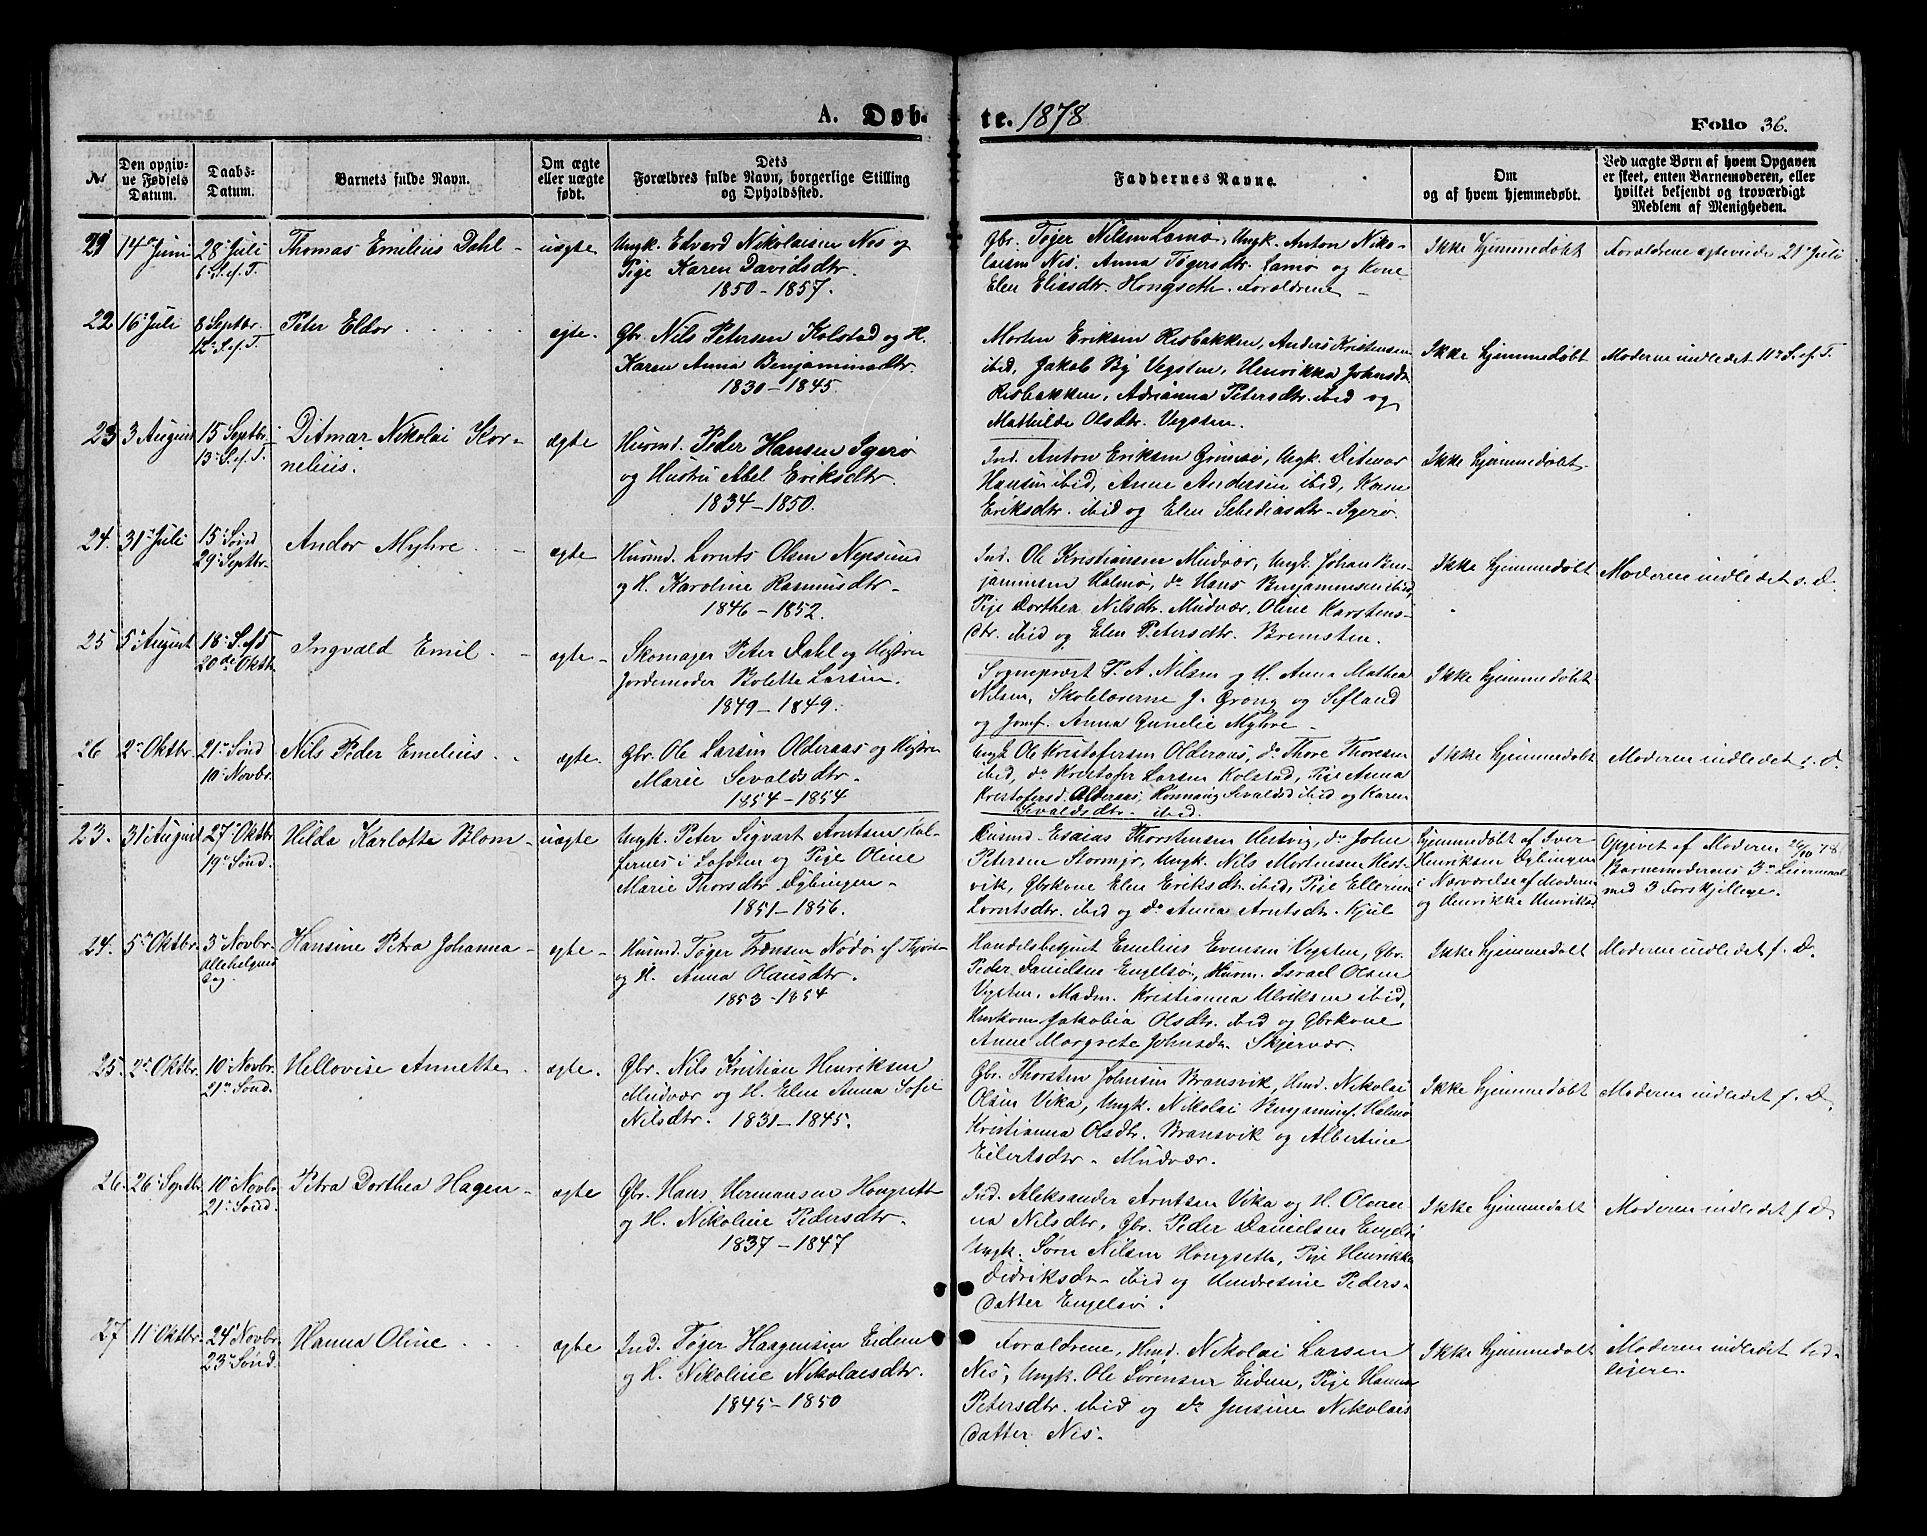 A. Døb-
te. 1878
Folio 36.
Nr.
Den opgiv-
ne Fødsels
Datum.
Daabs-
Datum.
Barnets fulde Navn.
Om ægte
eller uægte
født.
Dets
Forældres fulde Navn, borgerlige Stilling
og Opholdssted.
Faddernes Navne.
Om
og af hvem hjemmedøbt.
Ved uægte Børn af hvem Opgaven
er skeet, enten Barnemoderen, eller
hvilket bekjendt og troværdigt
Medlem af Menigheden.
21
14de Juni
28 Juli
6 S. ef. T.
Thomas Emilius Dahl
uægte
Ungk. Edvard Nikolaisen Nes og
Pige Karen Davidsdtr.
1850 - 1857.
Gbr. Tøger Nilsen Lamø, Ungk. Anton Niko-
laisen Nis. Anna Tøgersdtr. Lamø og Kone
Elen Eliasdtr. Hongseth. Forældrene
Ikke hjemmedøbt
Forældrene egteviede 21 Juli
22
16 Juli
8 Septbr.
12 S. ef. T.
Peter Eldor
egte.
Gbr. Nils Petersen Kolstad og H.
Karen Anna Benjaminsdtr.
1830 - 1845.
Morten Eriksen Risbakken, Anders Kristensen
ibid, Jakob By Vegsten, Henrikka Johnsdr
Risbakken, Adrianna Petersdtr. ibid og
Mathilde Olsdtr. Vegsten.
Ikke hjemmedøbt
Moderen indledet 11te S. ef. T.
23
3 August
15 Septbr.
13 S. ef. T.
Ditmar Nikolai Kor-
nelius.
ægte
Husmd. Peder Hansen Igerø
og Hustru Abel Eriksdtr.
1834 - 1850.
Ind. Anton Eriksen Grimsø, Ungk. Ditmar
Hansen ibid, Anne Andersen ibid, Karen
Eriksdtr. ibid og Elen Sebediasdtr. Igerø.
Ikke hjemmedøbt
24.
31 Juli
15 Sønd
29 Septbr.
Andor Myhre
ægte
Husmd. Lornts Olsen Nepsund
og H. Karoline Rasmusdtr.
1846 - 1852.
Ind. Ole Kristiansen Mudvær, Ungk. Johan Ben-
jaminsen Halmø, do Hans Benjaminsen ibid,
Pige Dorthea Nilsdtr. Mudvær, Oline Karstens-
dtr. ibid og Elen Petersdtr. Bremsten.
Ikke hjemmedøbt
Moderen indledet s. D.
25
5 August
18 S. ef.
20de Oktbr
Ingvald Emil
ægte
Skomager Peter Dahl og Hustru
Jordemoder Bolette Larsen.
1849 - 1849.
Sogneprest P. A. Nilsen og H. Anna Mathea
Nilsen, Skolelærerne J. Grong og Sefland
og Jomf. Anna Gunelie Myhre
Ikke hjemmedøbt
26
2 Oktbr.
21 Sønd
10 Novbr.
Nils Peder Emelius
ægte.
Gbr. Ole Larsen Olderaas og Hustru
Marie Sevaldsdtr.
1854 - 1854
Ungk Ole Kristofersen Olderaas, do Thore Thoresen
ibid, do Kristofer Larsen Kolstad, Pige Anna
Kristofersd. Olderaas, Rønnaug Sevaldsd ibid og Karen
Sevaldsdtr. ibid.
Ikke hjemmedøbt
Moderen indledet s. d.
23.
31 August
27 Oktbr
19 Sønd.
Hilda Karlotta Blom
uægte
Ungk. Peter Sigvart Arntsen,
i Lofoten og Pige Oline
Marie Thorsdtr. Dybingen
1851 - 1856.
Husmd. Esaias Thorstensen Hestvig, do John
Petersen Stormyr, Ungk. Nils Mortensen Hest-
vik, Gbrkone Elen Eriksdtr. ibid, Pige Ellerine
Lorntsdtr. ibid og do Anna Arntsdtr. Kjul
Hjemmedøbt af Iver
Henriksen Dybingen
i Nærværelse af Moderen
og Henrikke Henriksd
Opgivet af Moderen 26/10 78.
Barnemoderens 3de Leiermaal
med 3 forskjellige.
24.
5 Oktbr.
3 Novbr.
Allehelgens
Dag.
Hansine Petra Johanna
egte
Husmd. Tøger Frensen Nødø af Thjøtta
og H. Anna Olausdtr.
1853 - 1854
Handelsbetjent Emelius Evensen Vegsten, Gbr.
Peder Danielsen Engelsø, Husm. Israel Olsen
Vegsten, Madm. Kristianna Ulriksen ibid,
Huskone Jakobia Olsdtr. ibid og Gbrkone
Anne Margrete Johnsdr. Skjervær.
Ikke hjemmedøbt
Moderen indledet f. D.
25.
2 Oktbr.
10 Novbr.
21 Sønd.
Hellovise Annette
ægte.
Gbr. Nils Kristian Henriksen
Mudvær og H. Elen Anna Sofie
Nilsdtr. 1831 - 1845.
Gbr. Thorsten Johnsen Bransvik, Hmd. Nikolai
Olsen Vika, Ungk. Nikolai Benjaminf. Halmø
Kristianna Olsdtr. Bransvik og Albertine
Eilertsdtr. Mudvær.
Ikke hjemmedøbt
Moderen indledet f. D.
26.
26 Septbr
10 Novbr
21 Sønd.
Petra Dorthea Hagen
ægte
Gbr. Hans Hermansen Hongseth
og H. Nikoline Pedersdtr.
1837 - 1847
Ind. Aleksander Arntsen Vika og H. Olean-
na Nilsdtr, Gbr. Peder Danielsen Engelsø
Ungk. Søren Nilsen Hongseth, Pige Henrikke
Didriksdr ibid og Andresine Peders-
datter Engelsø.
Ikke hjemmedøbt
Moderen indledet f. D.
27
11 Oktbr.
24 Novbr.
23 Sønd.
Hanna Oline
ægte
Ind. Tøger Haagensen Eidem
og H. Nikoline Nikolaisdtr.
1845 - 1850
Forældrene, Hmd. Nikolai Larsen
Nis, Ungk. Ole Sørensen Eidem, Pige Hanna
Petersdtr. ibid og do Jensine Nikolais
datter Nis.
Ikke hjemmedøbt
Moderen indledet tid-
ligere.